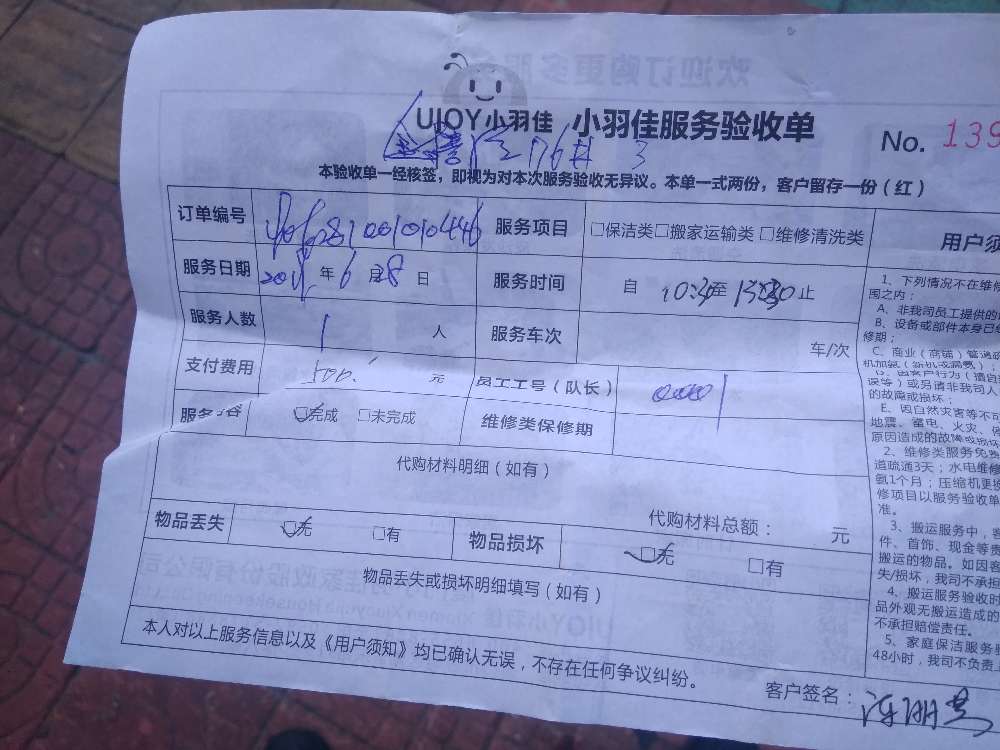 UJOY小羽佳 小羽佳服务验收单
No. 139
本验收单一经核签，即视为对本次服务验收无异议。本单一式两份，客户留存一份（红）
订单编号
服务项目 □保洁类□搬家运输类 □维修清洗类
服务日期 年 6 月28 日
服务时间 自 10:30至 止
服务人数 1 人
服务车次 车/次
支付费用 500 元
员工工号（队长） 0001
□完成 □未完成
维修类保修期
代购材料明细（如有）
代购材料总额： 元
物品丢失 □无 □有
物品损坏 □无 □有
物品丢失或损坏明细填写（如有）
本人对以上服务信息以及《用户须知》均已确认无误，不存在任何争议纠纷。
客户签名：
用户须
1、下列情况不在维修
围之内：
A、非我司员工提供的
B、设备或部件本身已
修期；
C、商业（商铺）管道
误等）或另请非我司人
的故障或损坏；
E、因自然灾害等不可
地震、蓄电、火灾、
原因造成的故障或损坏
2、维修类服务免费
道疏通3天；水电维修
氨1个月；压缩机更换
修项目以服务验收单
准。
3、搬运服务中，客
件、首饰、现金等贵
搬运的物品。如因客
失/损坏，我司不承担
4、搬运服务验收时
品外观无搬运造成的
不承担赔偿责任。
5、家庭保洁服务
48小时，我司不负责